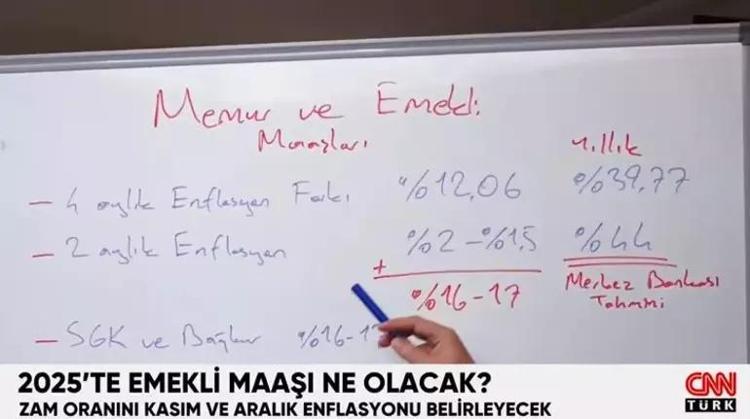 Memur ve Emekli
Maaşları
Yıllık
- 4 aylık Enflasyon Farkı %12,06 %39,77
- 2 aylık Enflasyon %2-%1,5 %44
+
%16-17 Merkez Bankası
Tahmini
- SGK ve Bağkur %16-17
2025'TE EMEKLİ MAAŞI NE OLACAK?
ZAM ORANINI KASIM VE ARALIK ENFLASYONU BELİRLEYECEK
CNN
TÜRK